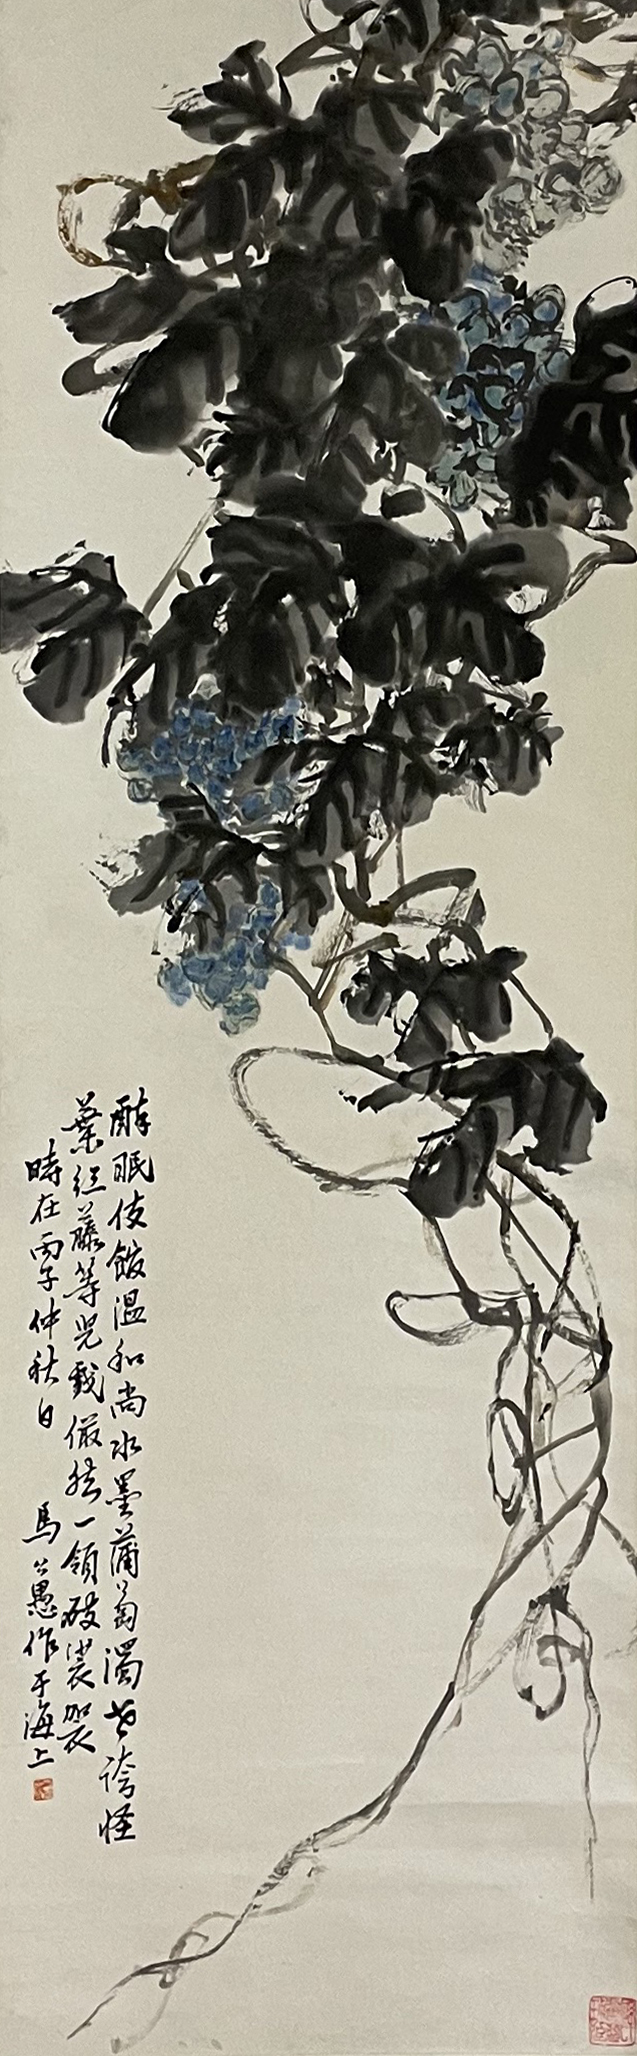 醉眠伎館溫和尚水墨蒲萄濁世誇怪
葉狂藤等兒戲儼然一領破袈裟
時在丙子仲秋日 馬公愚作于海上